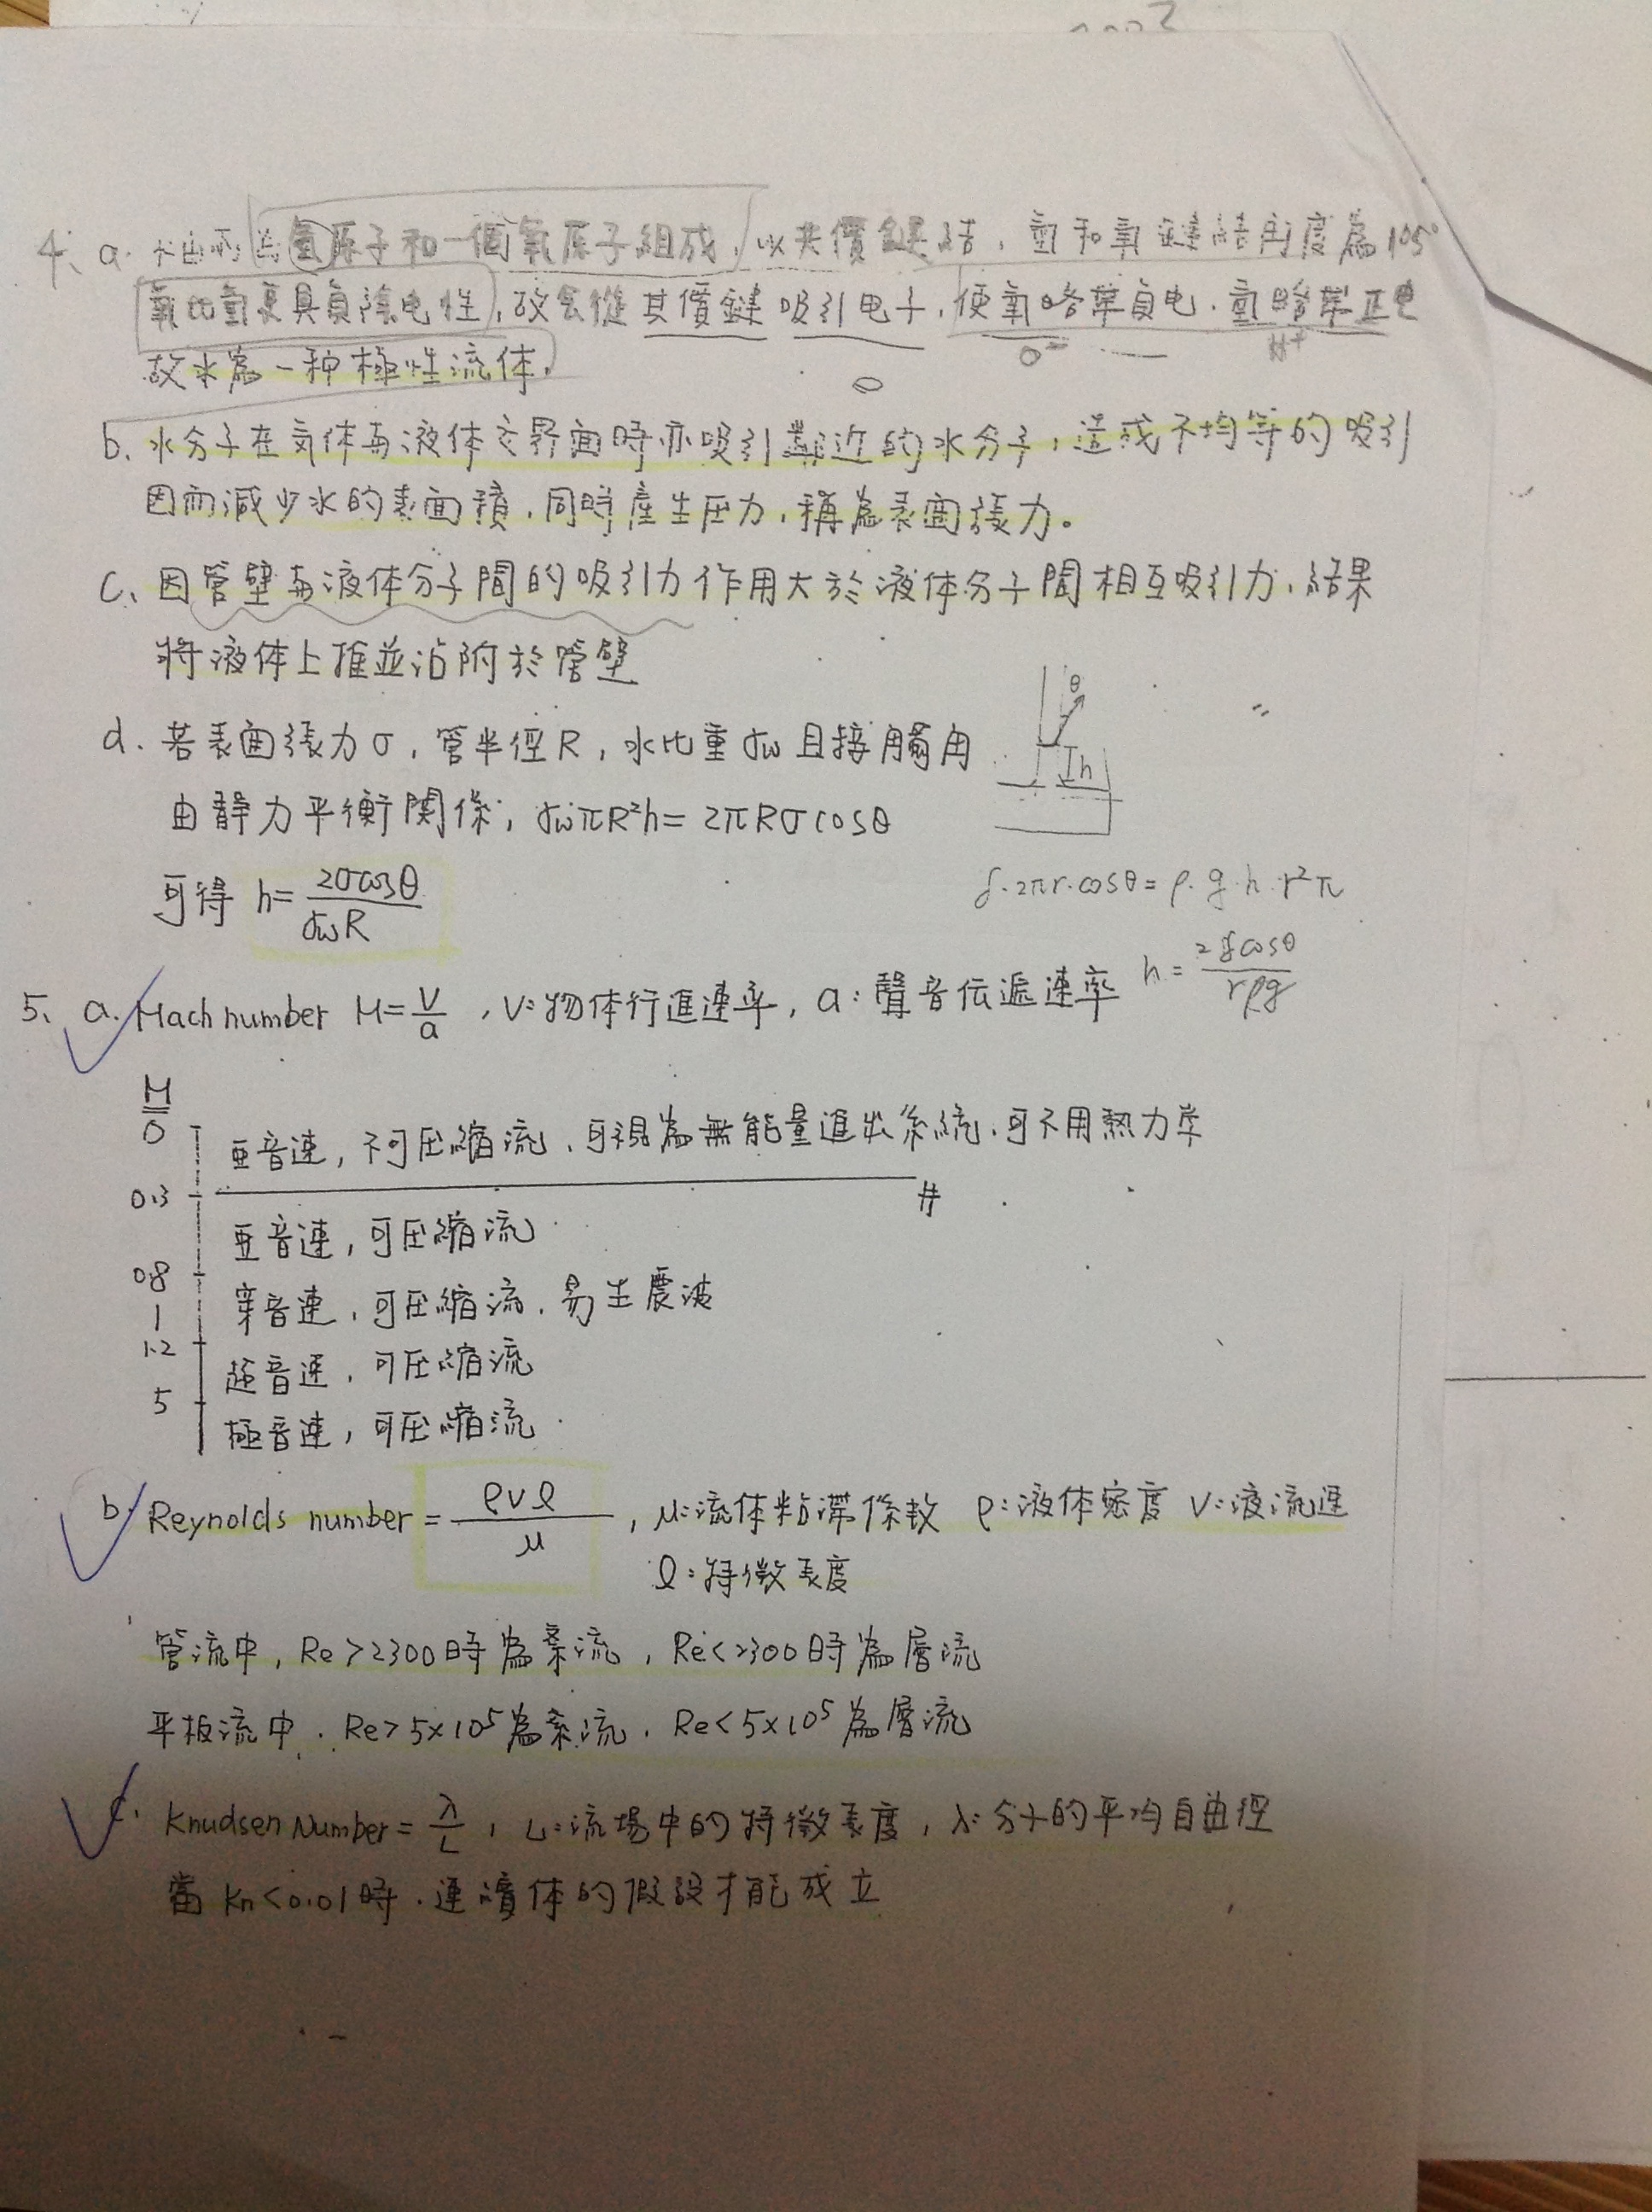 4、a. 水由兩個氫原子和一個氧原子組成，以共價鍵結，氫和氧鍵結角度為105°
氧比氫更具負陰电性，故会從其價鍵吸引电子，使氧略帶負电，氫略帶正电
O⁻ H⁺
故水為一种極性流体，
b. 水分子在気体与液体交界面時亦吸引鄰近的水分子，造成不均等的吸引
因而減少水的表面積，同時產生压力，稱為表面張力。
c、因管壁与液体分子間的吸引力作用大於液体分子間相互吸引力，結果
將液体上推並沾附於管壁
θ
h
d. 若表面張力σ，管半徑R，水比重γw且接觸角
由靜力平衡関係，γwπR²h = 2πRσcosθ
可得 h = 2σcosθ / γwR
γ·2πr·cosθ = ρ·g·h·r²π
h = 2γcosθ / rρg
5、a. Mach number M = V/a ，V：物体行進速率，a：聲音伝遞速率
M
0 亜音速，不可压縮流，可視為無能量進出系統，可不用熱力学
0.3 #
亜音速，可压縮流
0.8
穿音速，可压縮流，易生震波
1
1.2
超音速，可压縮流
5
極音速，可压縮流
b. Reynolds number = ρvℓ / μ ，μ：流体粘滯係数 ρ：液体密度 V：液流速
ℓ：特徵長度
管流中，Re > 2300時為紊流，Re < 2300時為層流
平板流中，Re > 5×10⁵為紊流，Re < 5×10⁵為層流
c. Knudsen Number = λ/L ，L：流場中的特徵長度，λ：分子的平均自由徑
當 Kn < 0.01時，連續体的假設才能成立